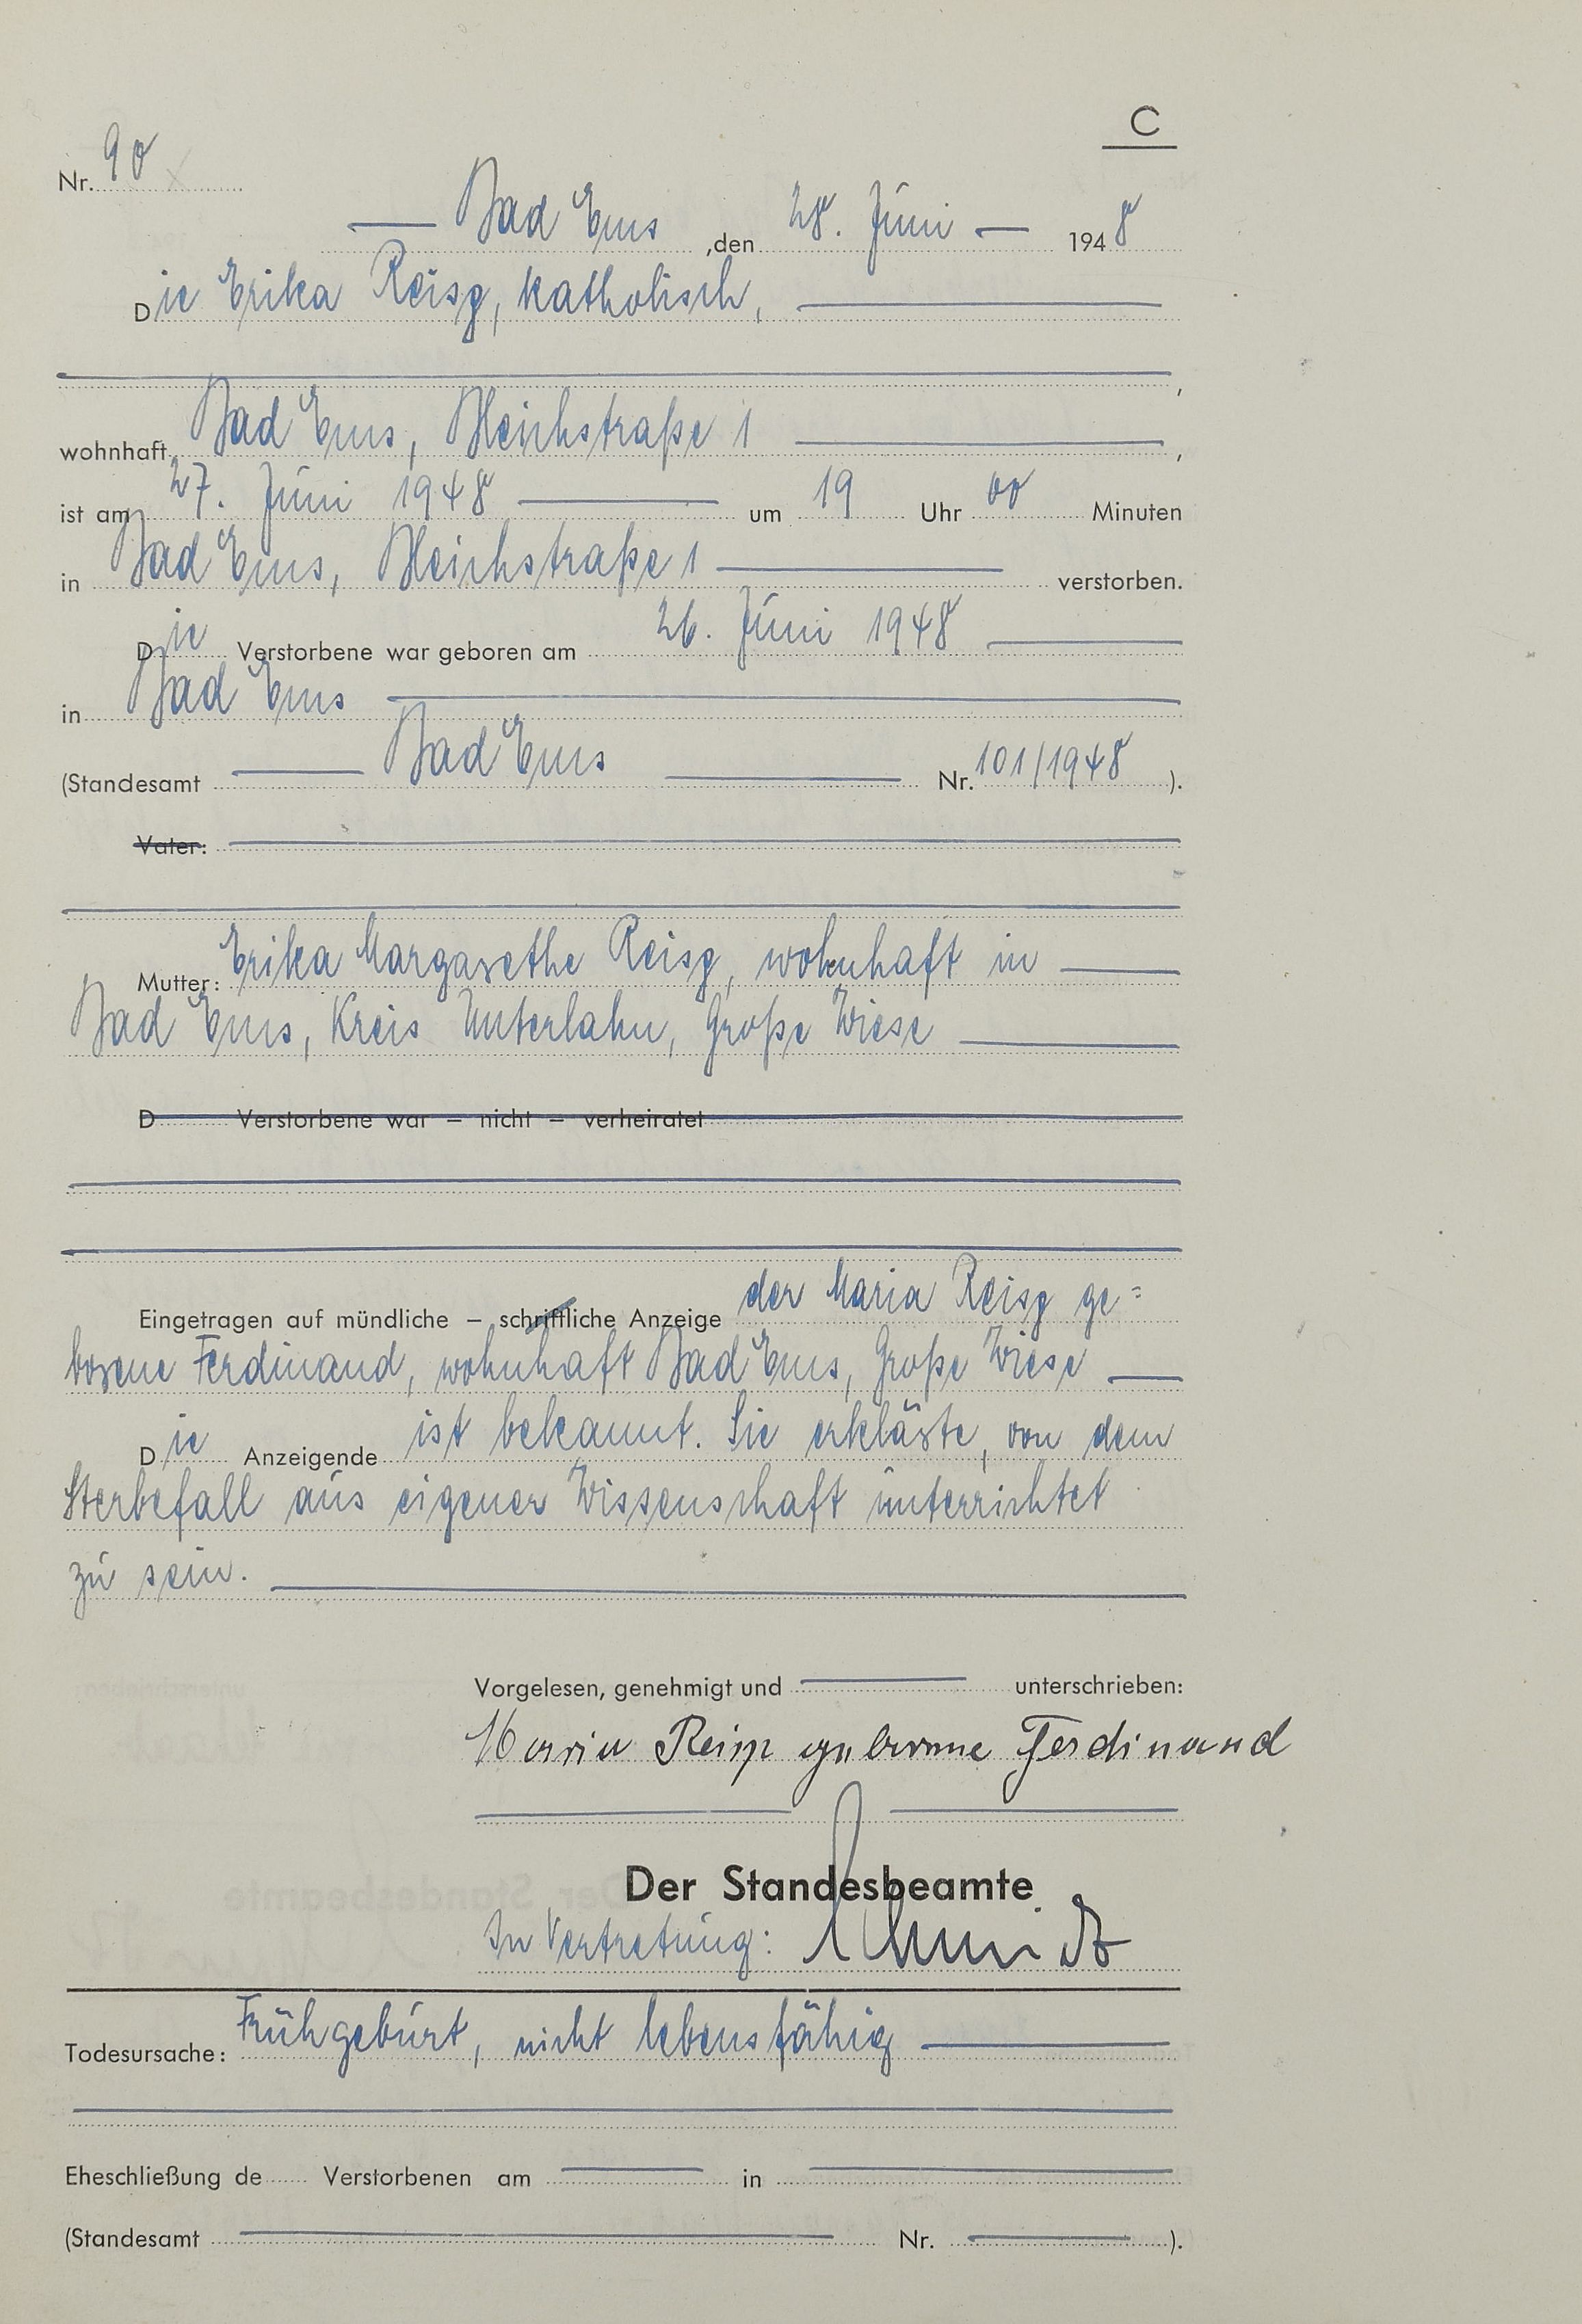 C
Nr. 90
Bad Ems, den 28. Juni 1948
Die Erika Reisg, katholisch,
,
wohnhaft Bad Ems, Bleichstraße 1,
ist am 27. Juni 1948 um 19 Uhr 00 Minuten
in Bad Ems, Bleichstraße 1 verstorben.
Die Verstorbene war geboren am 26. Juni 1948
in Bad Ems
(Standesamt Bad Ems Nr. 101/1948).
Vater:
Mutter: Erika Margarethe Reisg, wohnhaft in
Bad Ems, Kreis Unterlahn, Große Wiese
D Verstorbene war – nicht – verheiratet
Eingetragen auf mündliche – schriftliche Anzeige der Maria Reisg ge=
borene Ferdinand, wohnhaft Bad Ems, Große Wiese
Die Anzeigende ist bekannt. Sie erklärte, von dem
Sterbefall aus eigener Wissenschaft unterrichtet
zu sein.
Vorgelesen, genehmigt und unterschrieben:
Maria Reisg geborene Ferdinand
Der Standesbeamte
In Vertretung: Schmidt
Todesursache: Frühgeburt, nicht lebensfähig
Eheschließung de Verstorbenen am in
(Standesamt Nr. ).